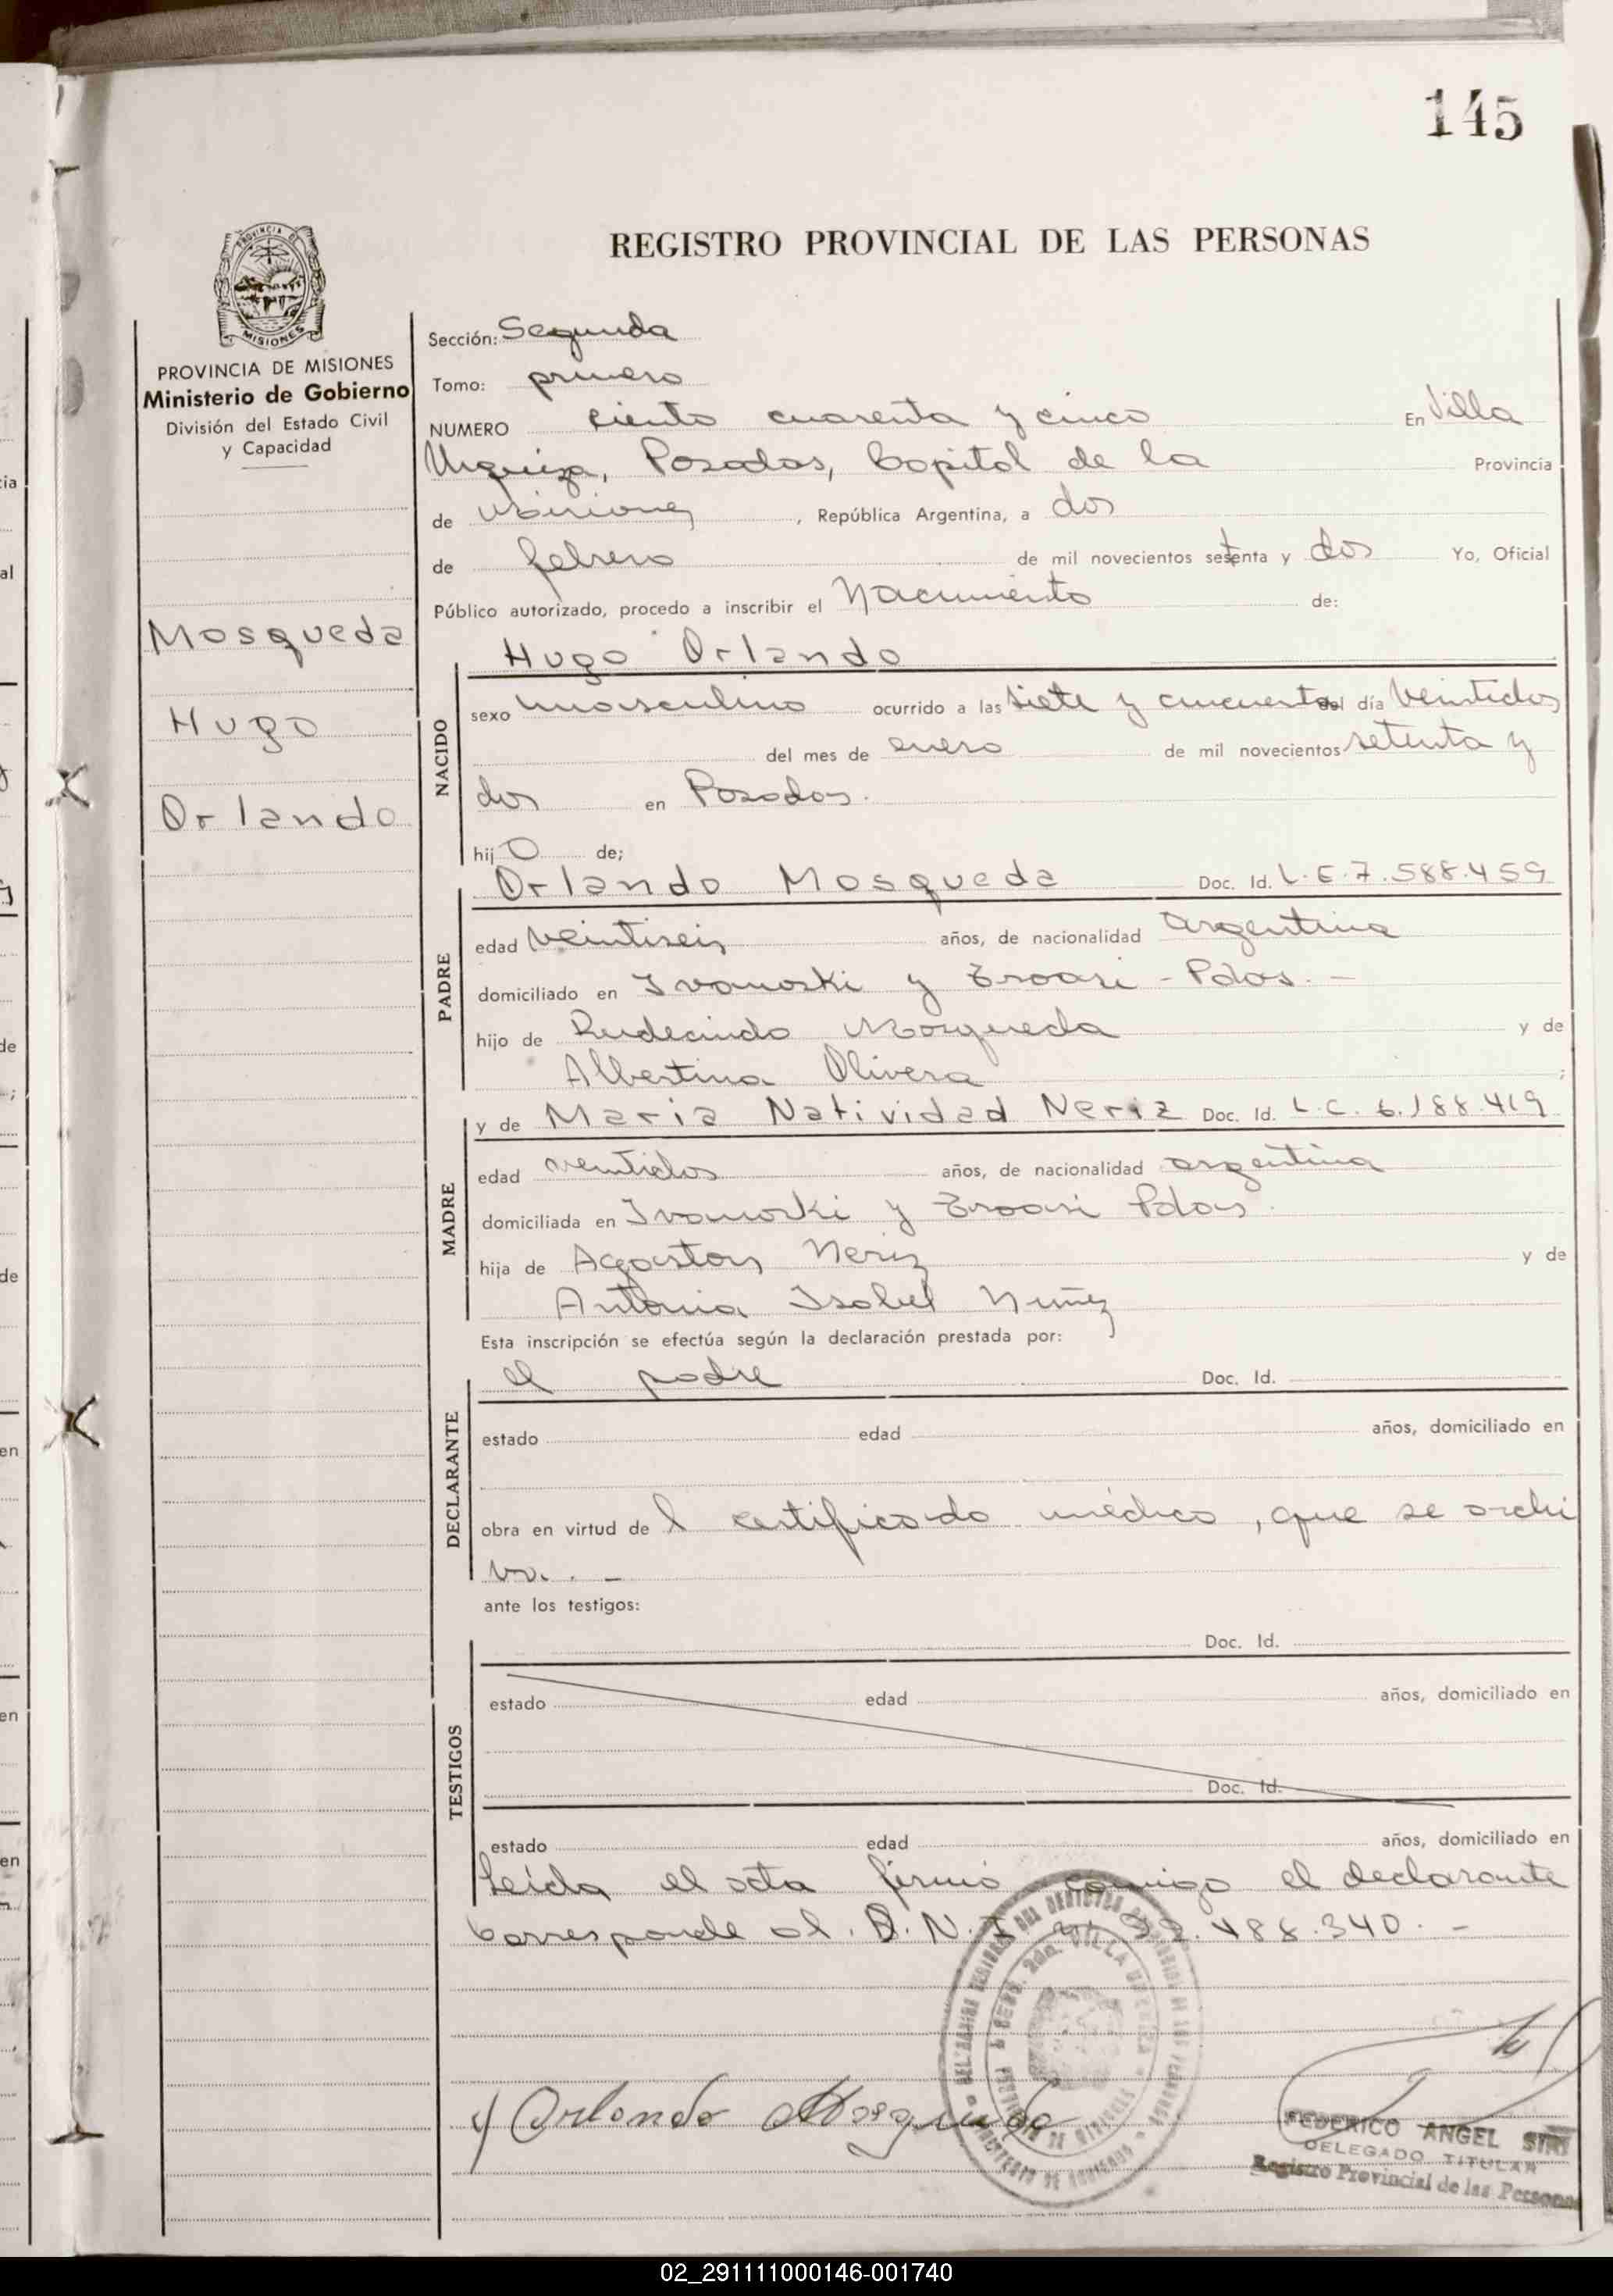 145
REGISTRO PROVINCIAL DE LAS PERSONAS
PROVINCIA DE MISIONES
Ministerio de Gobierno
División del Estado Civil
y Capacidad
Mosqueda
Hugo
Orlando
Sección: Segunda
Tomo: primero
NUMERO ciento cuarenta y cinco En Villa
Urquiza, Posadas, Capital de la Provincia
de Misiones, República Argentina, a dos
de febrero de mil novecientos setenta y dos Yo, Oficial
Público autorizado, procedo a inscribir el Nacimiento de:
Hugo Orlando
NACIDO
sexo masculino ocurrido a las siete y cincuenta del día veintidos
del mes de enero de mil novecientos setenta y
dos en Posadas.
hijo de;
PADRE
Orlando Mosqueda Doc. Id. L.E.7.588.459
edad veintiseis años, de nacionalidad argentina
domiciliado en y - Pdas. -
hijo de Rudecindo Mosqueda y de
Albertina Olivera ;
MADRE
y de Maria Natividad Neriz Doc. Id. L.C. 6.188.419
edad veintidos años, de nacionalidad argentina
domiciliada en y Pdas
hija de Neriz y de
Antonia Isabel Nuñez
Esta inscripción se efectúa según la declaración prestada por:
DECLARANTE
el padre Doc. Id.
estado edad años, domiciliado en
obra en virtud del certificado médico, que se archi
va. . -
ante los testigos:
TESTIGOS
Doc. Id.
estado edad años, domiciliado en
Doc. Id.
estado edad años, domiciliado en
Leída el acta firmó conmigo el declarante
Corresponde al D.N.I. .488.340. -
Orlando Mosqueda
FEDERICO ANGEL
DELEGADO TITULAR
Registro Provincial de las Personas
02_291111000146-001740